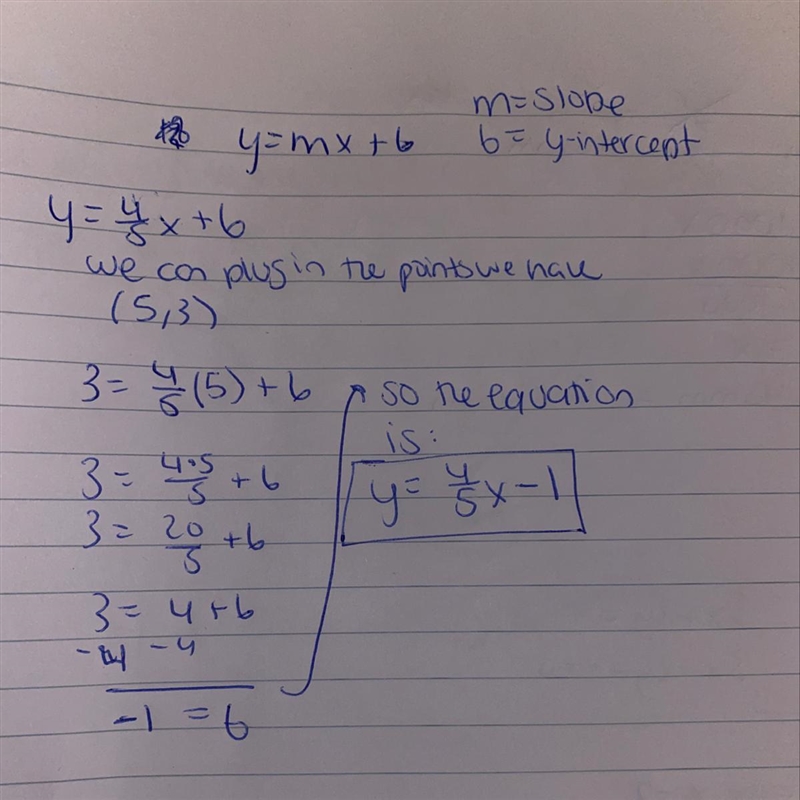 m=slope
y=mx+b
b= y-intercept
y=4/5x+b
we can plug in the points we have
(5,3)
3=4/5(5)+b
3=4•5/5+b
3=20/5+b
3=4+b
-4 -4
-1=b
so the equation
is:
y=4/5x-1